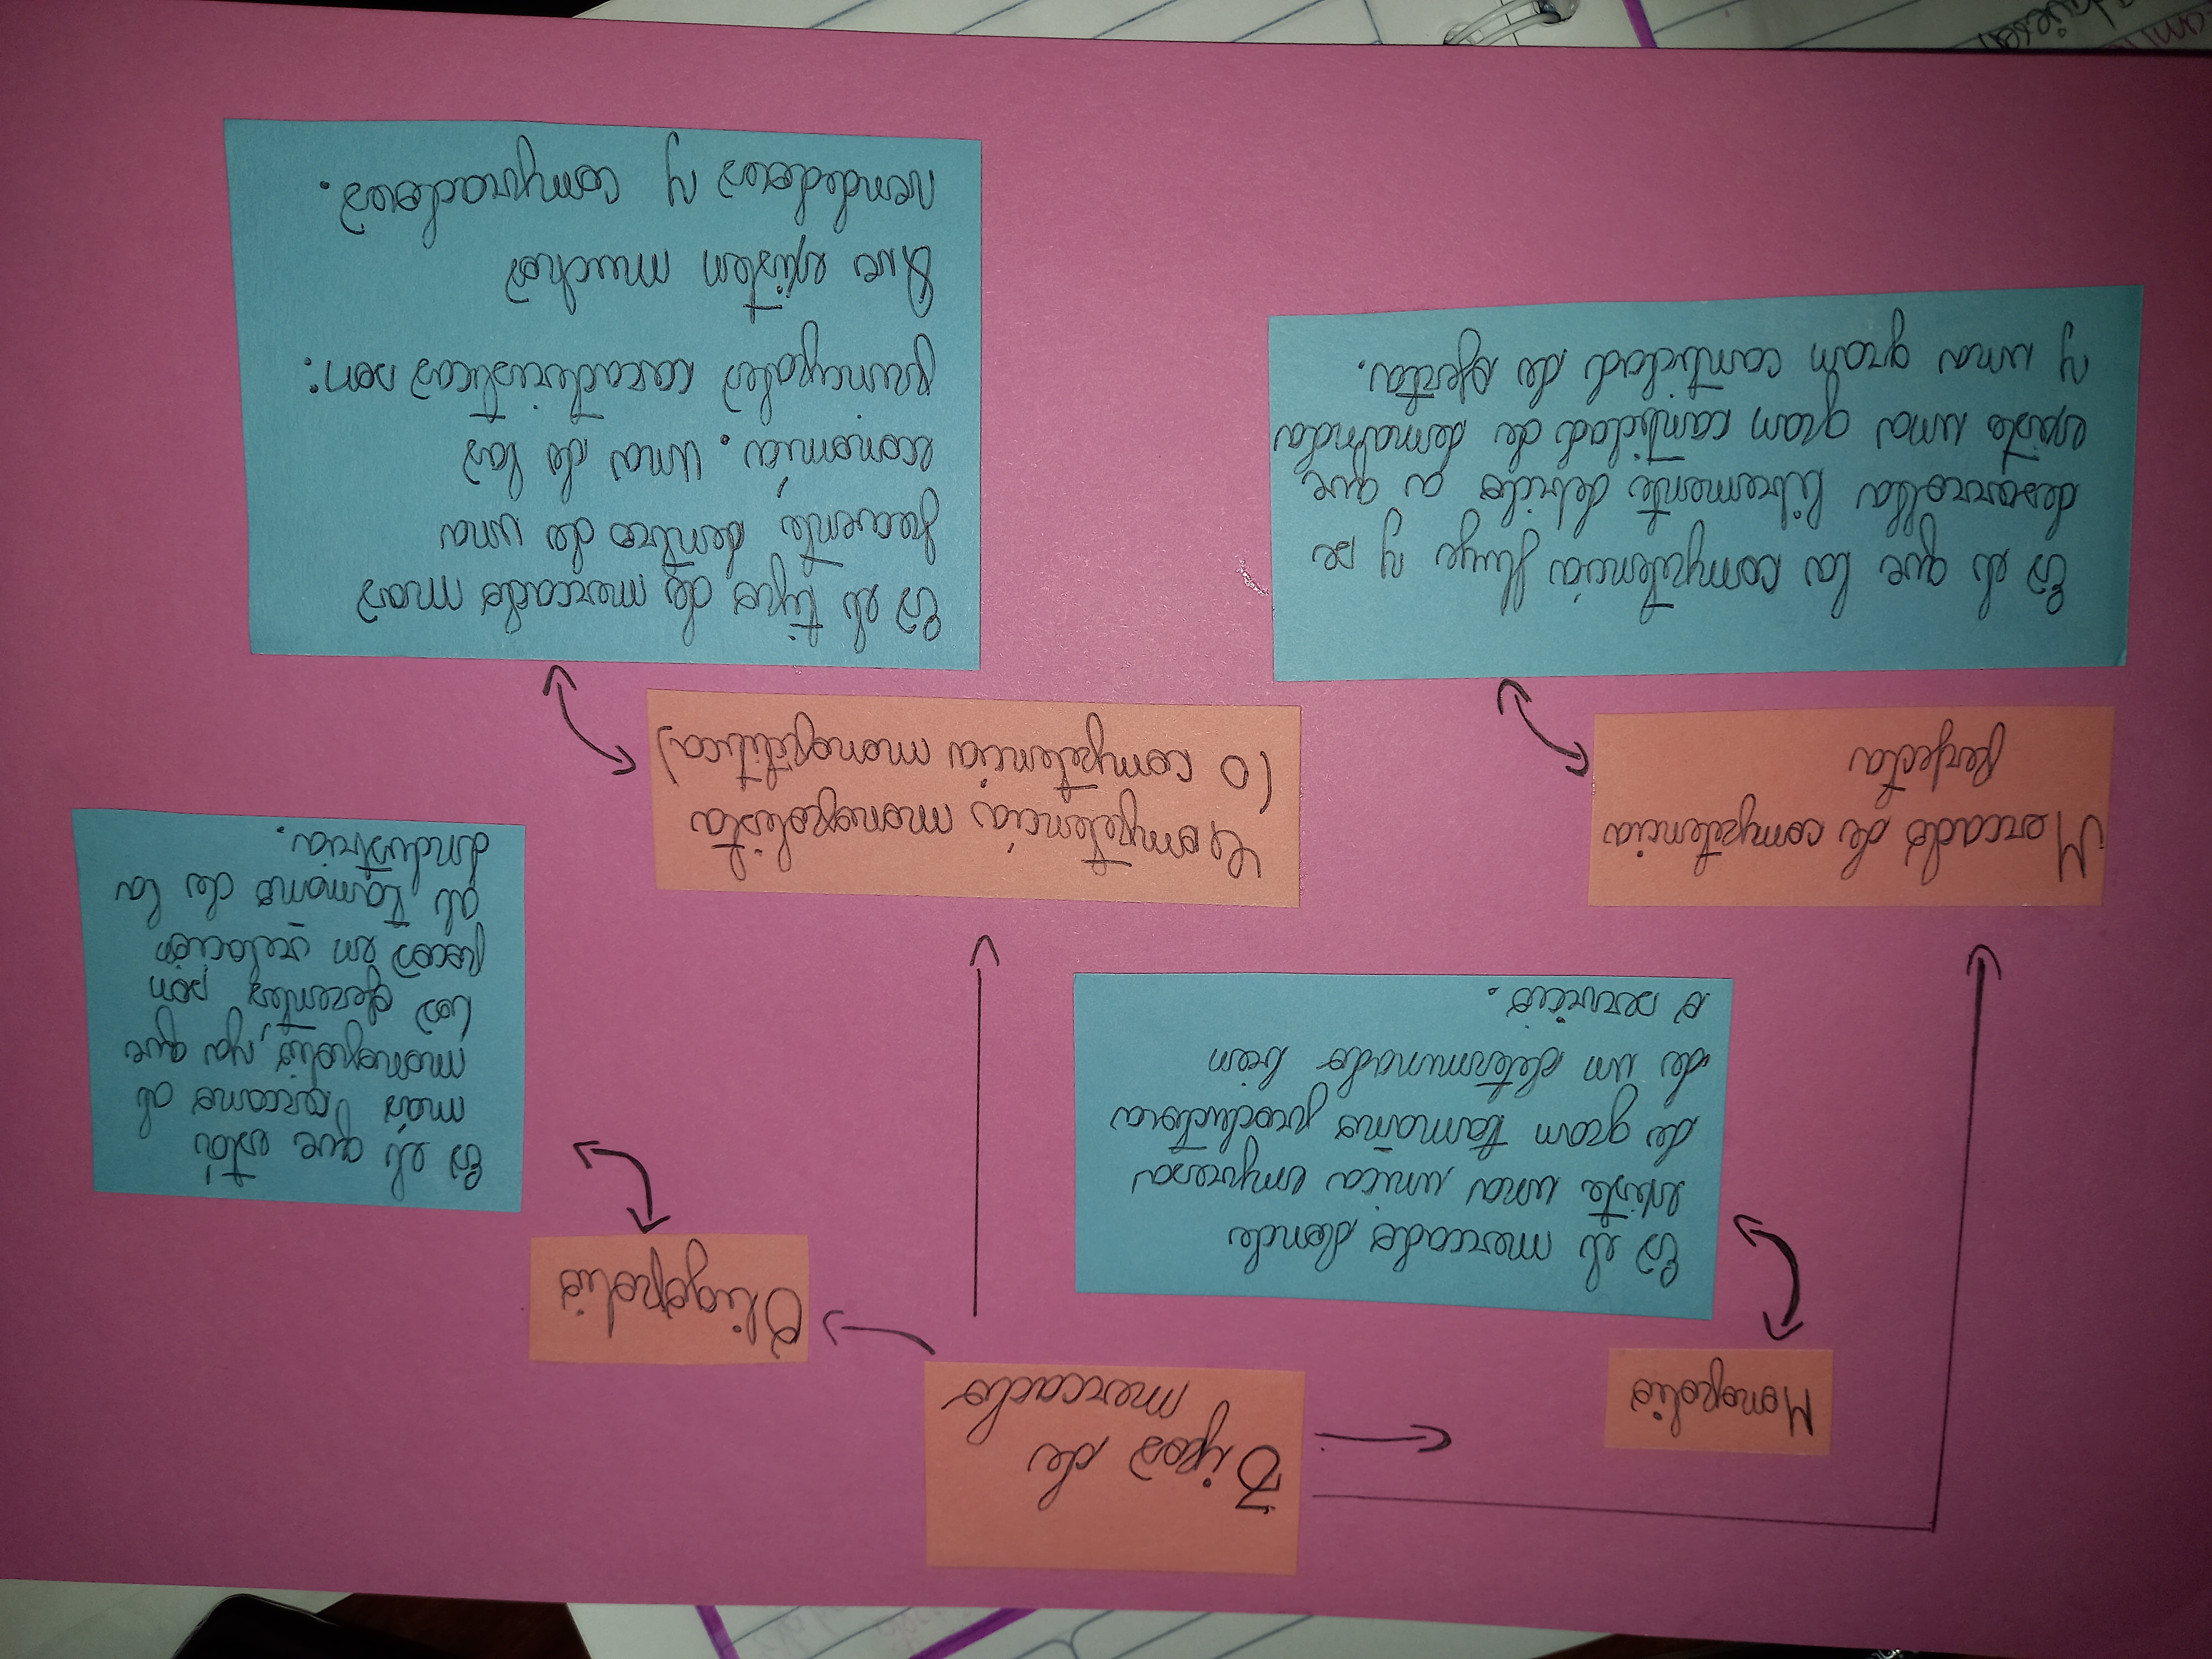 Tipos de
mercado
Monopolio
Es el mercado donde
existe una unica empresa
de gran tamaño productora
de un determinado bien
o servicio.
Oligopolio
Es el que está
más cercano al
monopolio, ya que
los oferentes son
pocos en relación
al tamaño de la
industria.
Mercado de competencia
Perfecta
Es el que la competencia fluye y se
desarrolla libremente debido a que
existe una gran cantidad de demanda
y una gran cantidad de oferta.
Competencia monopolista
(o competencia monopolítica)
Es el tipo de mercado mas
frecuente dentro de una
economía. Una de las
principales características son:
Que existen muchos
vendedores y compradores.